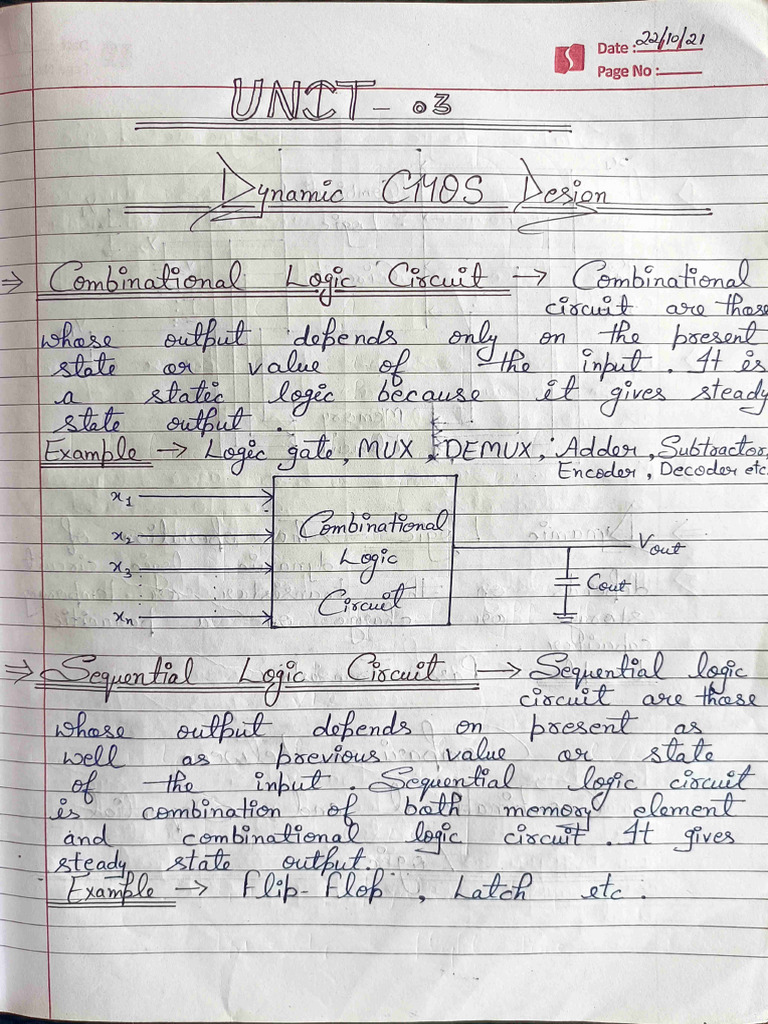 Date: 22/10/21
Page No:
UNIT - 03
Dynamic CMOS Design
⇒ Combinational Logic Circuit → Combinational
circuit are those
whose output depends only on the present
state or value of the input. It is
a static logic because it gives steady
state output.
Example → Logic gate, MUX, DEMUX, Adder, Subtractor,
Encoder, Decoder etc.
x1
x2
x3
xn
Combinational
Logic
Circuit
Vout
Cout
⇒ Sequential Logic Circuit → Sequential logic
circuit are those
whose output depends on present as
well as previous value or state
of the input. Sequential logic circuit
is combination of both memory element
and combinational logic circuit. It gives
steady state output.
Example → Flip-Flop, Latch etc.